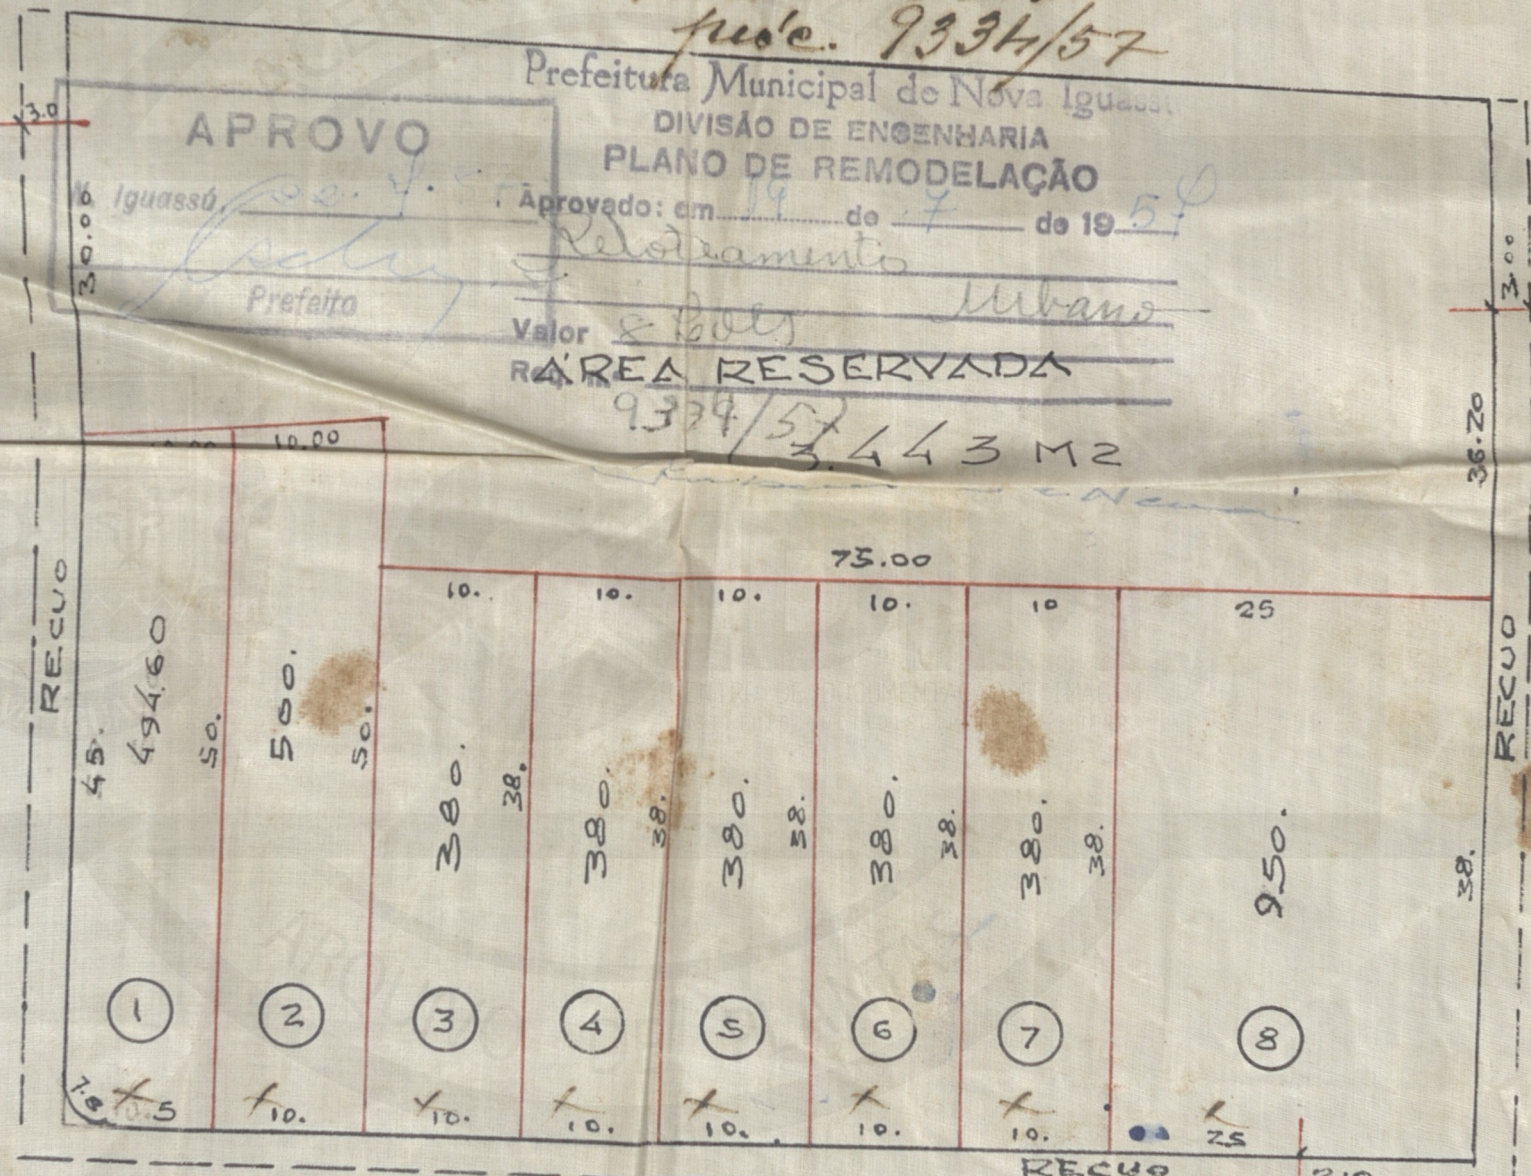 proc. 9334/57
Prefeitura Municipal de Nova Iguassú
DIVISÃO DE ENGENHARIA
PLANO DE REMODELAÇÃO
Aprovado: em 19 de 7 de 1957
Reloteamento
Urbano
Valor 8 lotes
9334/57
APROVO
N. Iguassú,
Prefeito
3.0
30.00
3.00
36.20
ÁREA RESERVADA
3.443 M2
10.00 10.00
75.00
10. 10. 10. 10. 10 25
RECUO
RECUO
45. 494.60 50. 500. 50. 380. 38. 380. 38. 380. 38. 380. 38. 380. 38. 950. 38.
1 2 3 4 5 6 7 8
7.8 5 10. 10. 10. 10. 10. 10. 25
RECUO